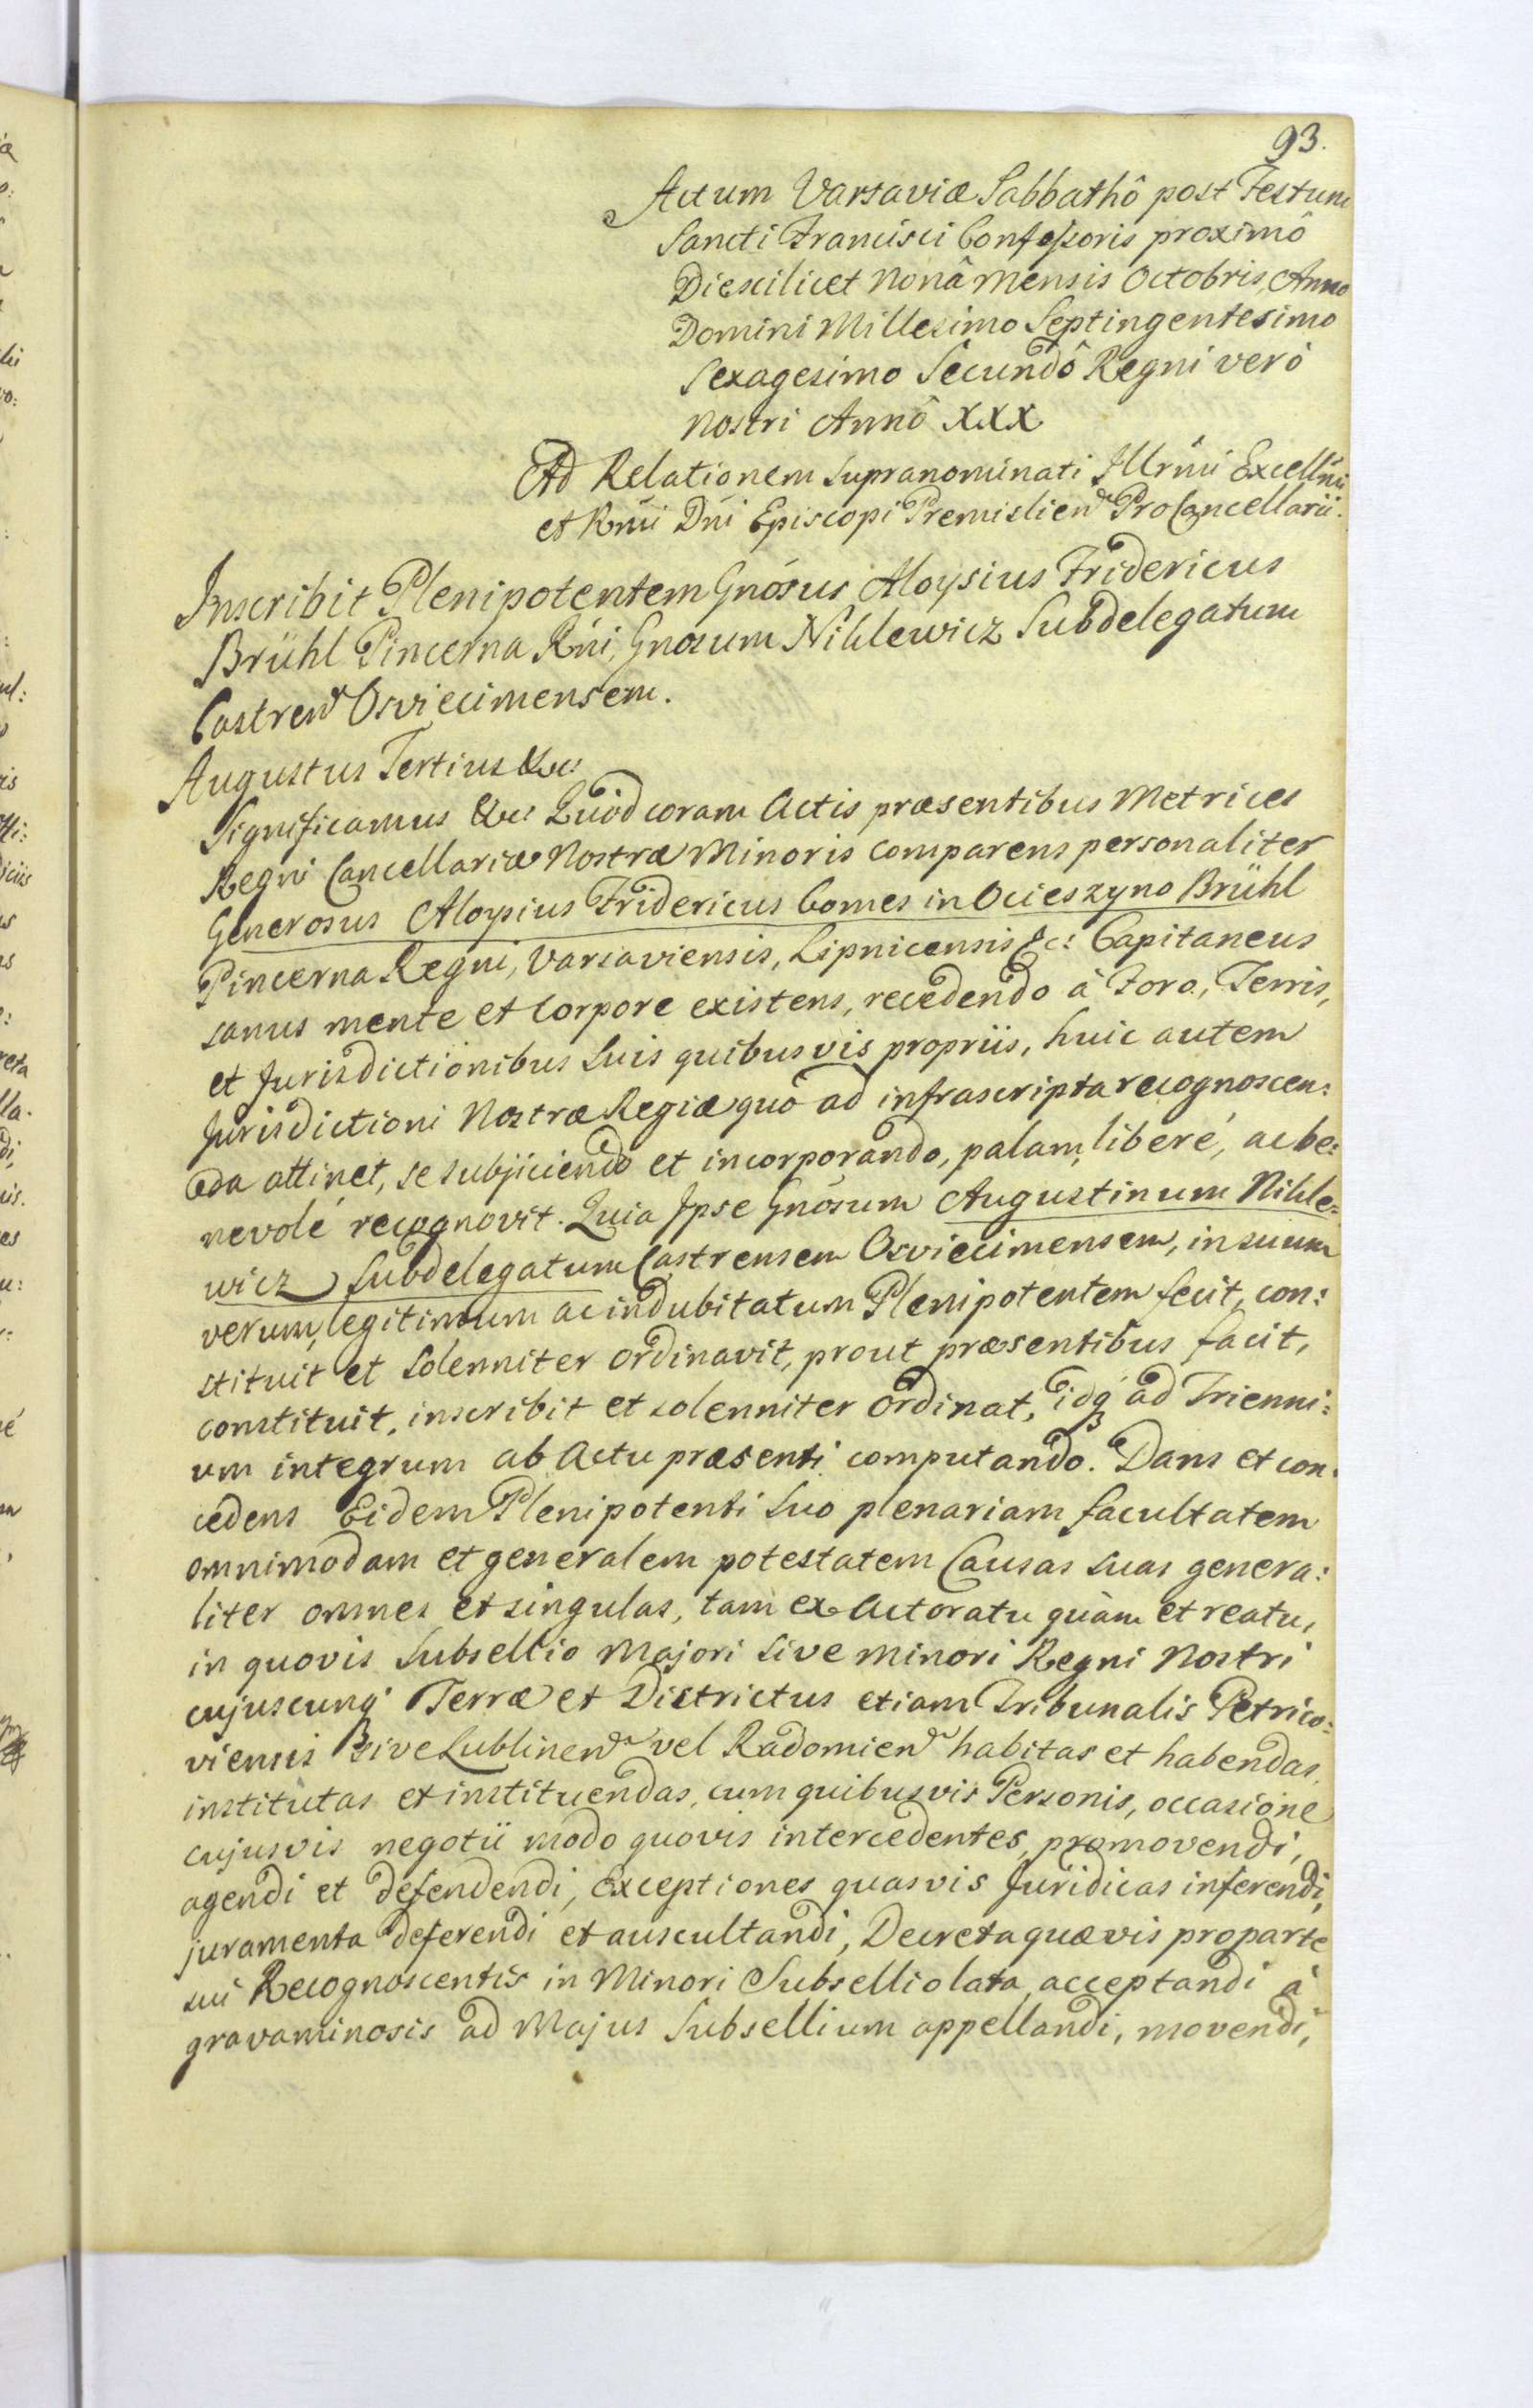 93.
Actum Varsaviæ Sabbathô post Festum
Sancti Francisci Confessoris proximô
Die scilicet Nonâ Mensis Octobris, Anno
Domini Millesimo Septingentesimo
Sexagesimo Secundô Regni verò
Nostri Annô XXX
Ad Relationem supranominati Illrm̃i Excelln̅i
et Rm̃i Dn̅i Episcopi Premislien̅ ProCancellarii.
Inscribit Plenipotentem Gnõsus Aloysius Fridericus
Brühl Pincerna Rn̅i, Gnosum Nihlewicz Subdelegatum
Castren̅ Osviecimensem.
Augustus Tertius &c:
Significamus &c: Quòd coram Actis præsentibus Metrices
Regni Cancellariæ Nostræ Minoris comparens personaliter
Generosus Aloysius Fridericus Comes in Ocieszyno Brühl
Pincerna Regni, Varsaviensis, Lipnicensis &c: Capitaneus
sanus mente et corpore existens, recedendo à Foro, Terris,
et Jurisdictionibus suis quibusvis propriis, huic autem
Jurisdictioni Nostræ Regiæ quò ad infrascripta recognoscen:
da attinet, se subjiciendo et incorporando, palam, liberé, ac be:
nevolé recognovit. Quia Ipse Gnõsum Augustinum Nihle:
wicz Subdelegatum Castrensem Osviecimensem, in suum
verum, legitimum ac indubitatum Plenipotentem fecit, con:
stituit et solenniter ordinavit, prout præsentibus facit,
constituit, inscribit et solenniter ordinat, idq́ ad Trienni:
um integrum ab Actu præsenti computando. Dans et con:
cedens Eidem Plenipotenti suo plenariam facultatem
omnimodam et generalem potestatem Causas suas genera:
liter omnes et singulas, tam ex Actoratu quàm et reatu,
in quovis Subsellio Majori sive Minori Regni Nostri
cujuscunq́ Terræ et Districtus etiam Tribunalis Petrico:
viensis sive Lublinen̅ vel Radomien̅ habitas et habendas,
institutas et instituendas, cum quibusvis Personis, occasione
cujusvis negotii modo quovis intercedentes, promovendi,
agendi et defendendi, exceptiones quasvis Juridicas inferendi,
juramenta deferendi et auscultandi, Decreta quævis pro parte
sui Recognoscentis in Minori Subsellio lata acceptandi à
gravaminosis ad Majus Subsellium appellandi, movendi,